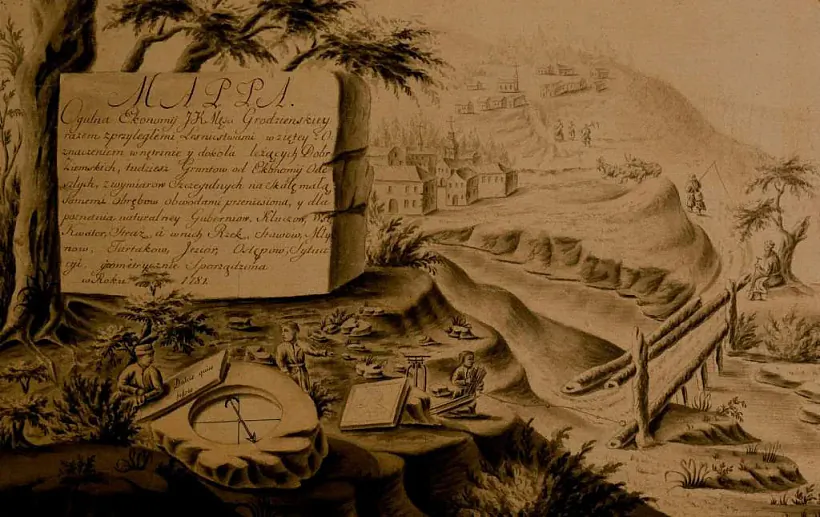 MAPPA.
Ogulna Ekonomij J.K. Msci Grodzieńskiey
razem z przyległemi Lesnictwami wziętey z O
znaczeniem wnętrznie y dokoła leżących Dobr
Ziemskich, tudziesz Gruntow od Ekonomij Od
z wymiarow Szczegulnych na Skalę małą
Samemi Obrębow obwodami przeniesiona, y dla
poznania naturalney Guberniow, Kluczow,
Kwater, Straz, a w nich Rzek, Stawow, Mły
now, Tartakow, Jezior, Ostępow, Sytua
cyi geometrycznie Sporządzona
w Roku 1781.